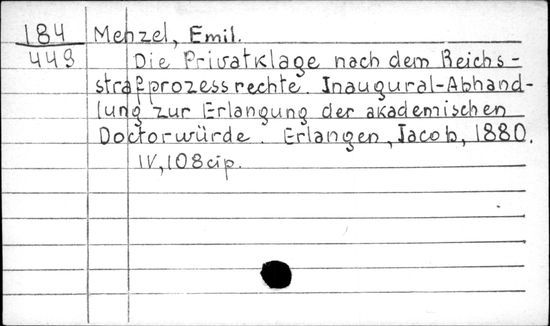 184 Menzel, Emil.
449 Die Privatklage nach dem Reichs-
strafprozessrechte. Inaugural-Abhand-
lung zur Erlangung der akademischen
Doctorwürde. Erlangen, Jacob, 1880.
IV, 108 стр.